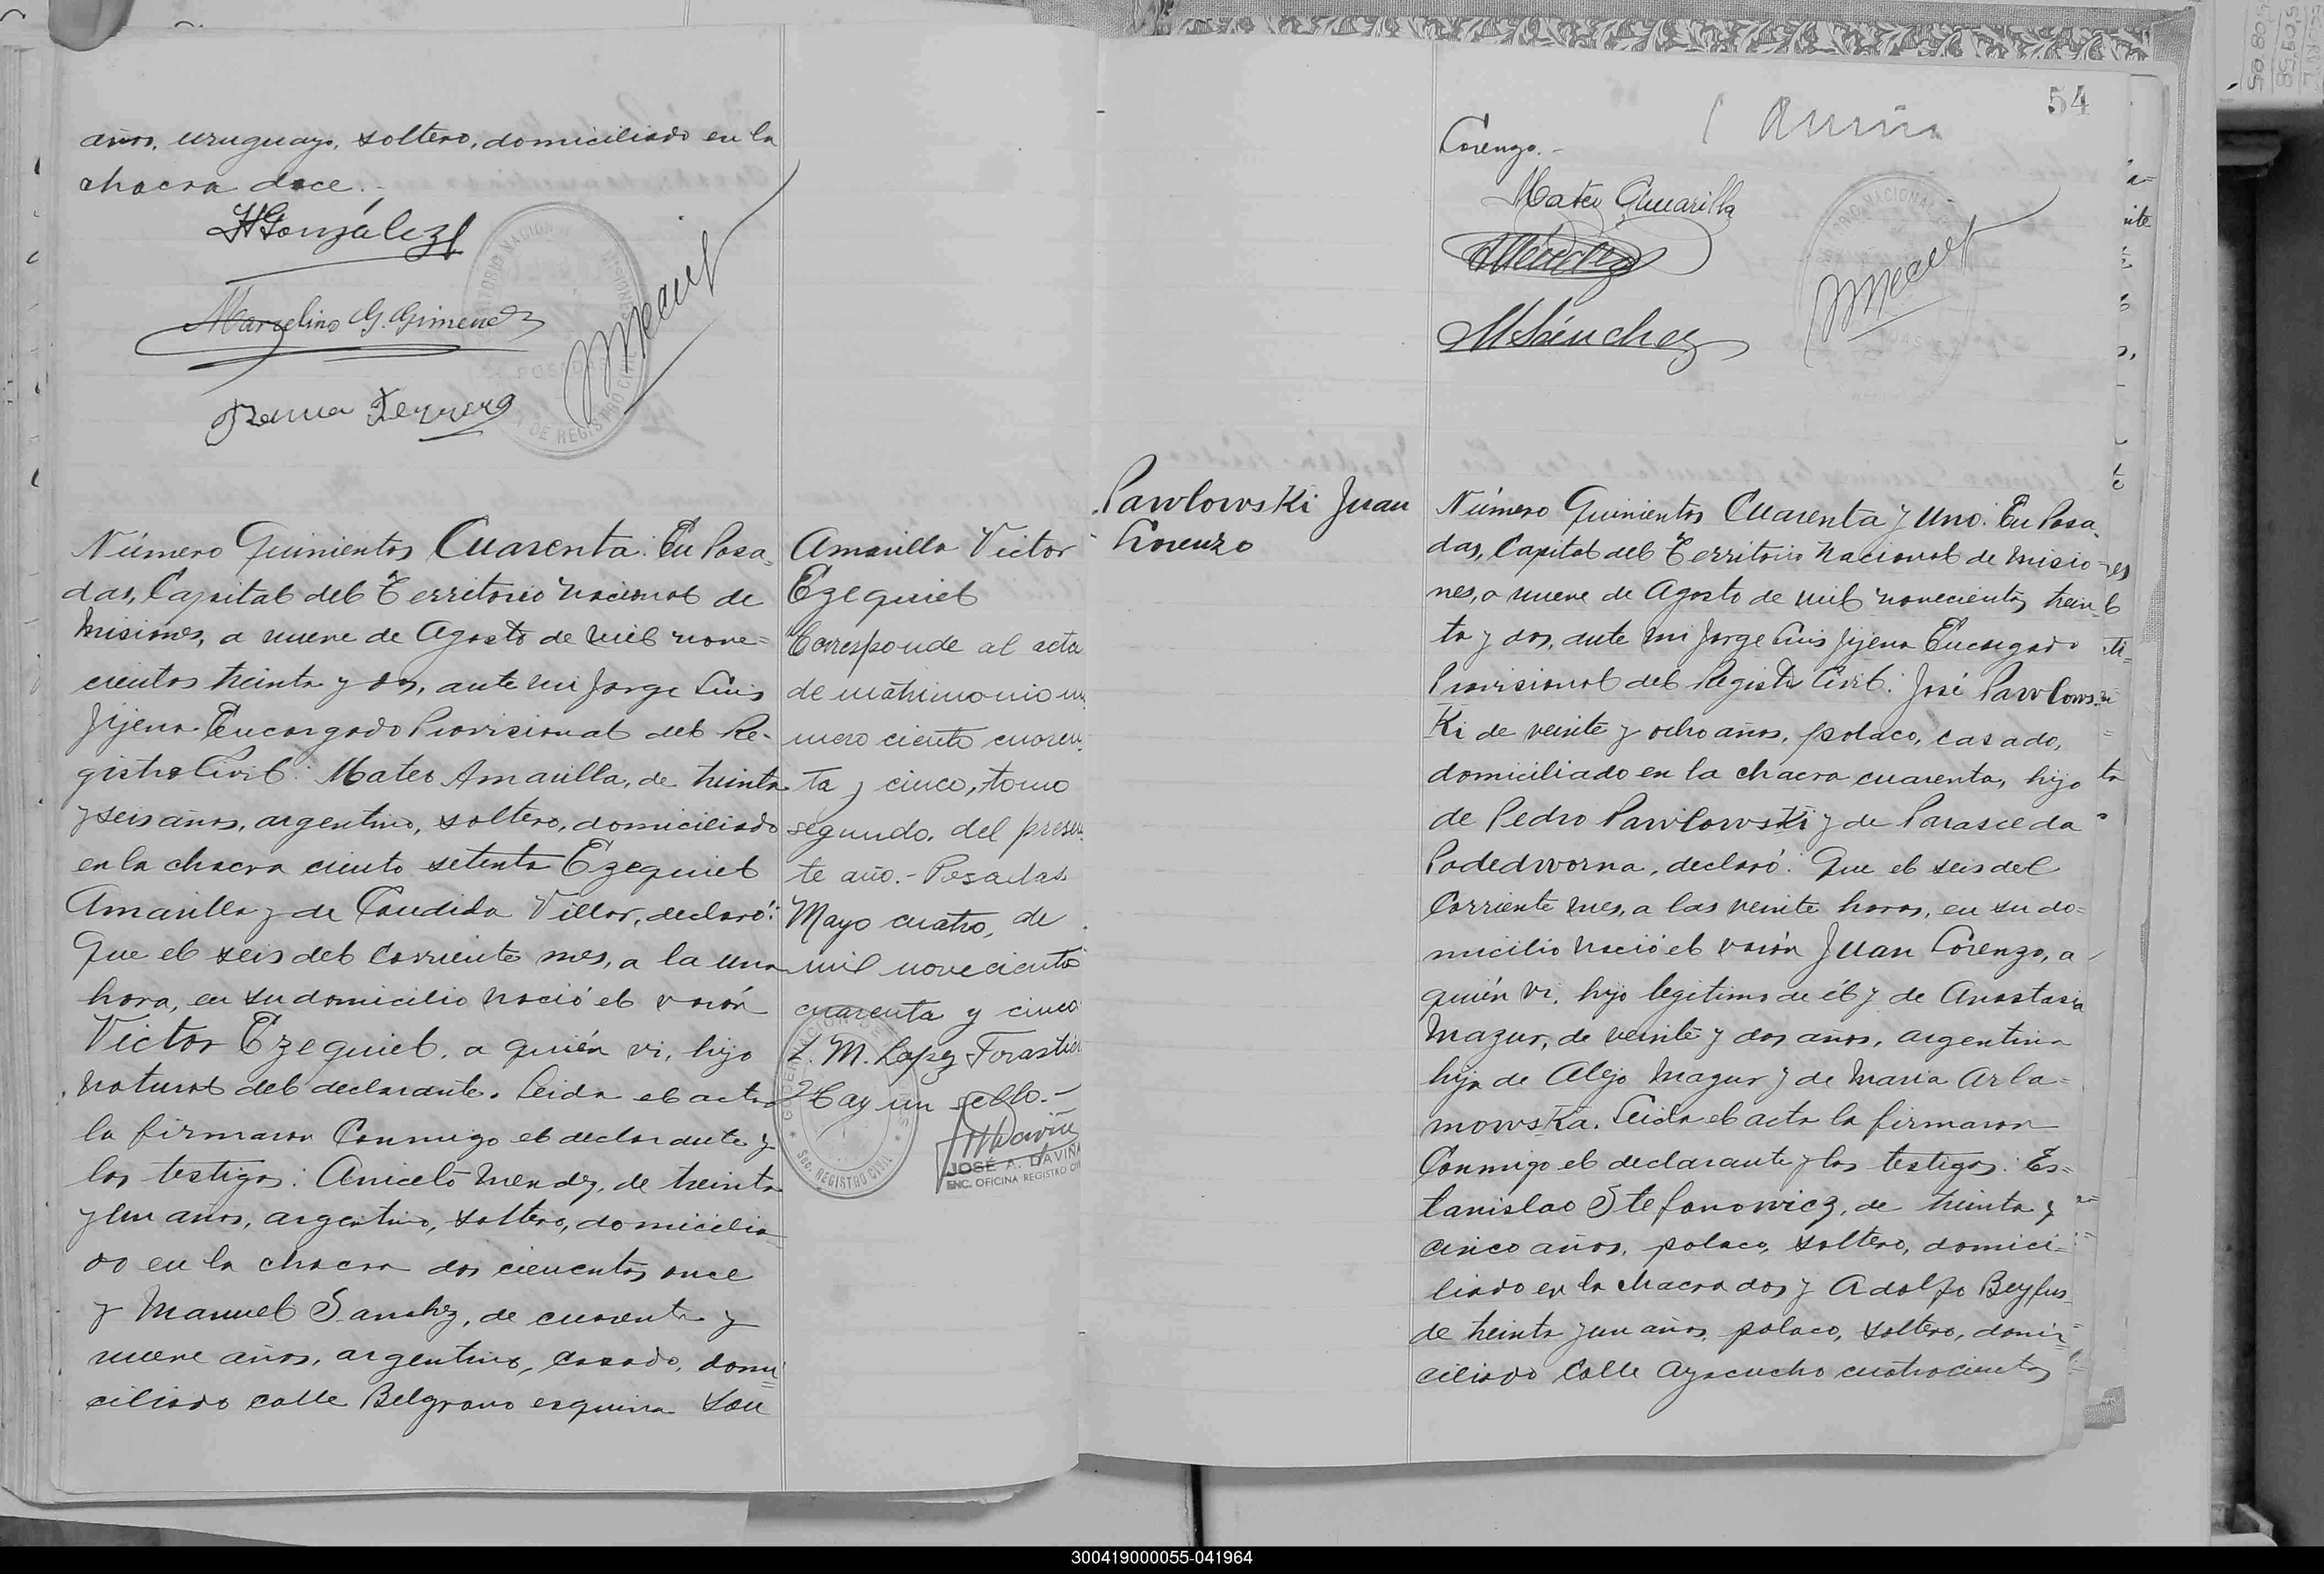 años, uruguayo, soltero, domiciliado en la
chacra doce.-
HGonzález
Marcelino G. Gimenez
Número Quinientos Cuarenta: En Posa-
das, Capital del Territorio Nacional de
Misiones, a nueve de Agosto de mil nove-
cientos treinta y dos, ante mi Jorge Luis
Jijena Encargado Provisional del Re-
gistro Civil: Mateo Amarilla, de treinta
y seis años, argentino, soltero, domiciliado
en la chacra ciento setenta Ezequiel
Amarilla y de Candida Villar, declaró:
Que el seis del corriente mes, a la una
hora, en su domicilio nació el varón
Victor Ezequiel, a quién vi, hijo
natural del declarante. Leida el acta
la firmaron Conmigo el declarante y
los testigos: Aniceto Mendez, de treinta
y un años, argentino, soltero, domicilia-
do en la chacra dos cientos once
y Manuel Sanchez, de cuarenta y
nueve años, argentino, casado, domi-
ciliado calle Belgrano esquina San
Amarilla Victor
Ezequiel
Corresponde al acta
de matrimonio nú-
mero ciento cuaren-
ta y cinco, tomo
segundo, del presen-
te año.- Posadas
Mayo cuatro, de
mil novecientos
cuarenta y cinco
L. M. Lopez Forastier
Hay un sello.-
JOSÉ A. DAVIÑA
ENC. OFICINA REGISTRO CIVIL
SEC. REGISTRO CIVIL
54
Lorenzo.-
Mateo Amarilla
MSánchez
Pawlowski Juan
Lorenzo
Número Quinientos Cuarenta y Uno: En Posa-
das, Capital del Territorio Nacional de Misio-
nes, a nueve de Agosto de mil novecientos trein-
ta y dos, ante mi Jorge Luis Jijena Encargado
Provisional del Registro Civil: José Pawlows-
Ki de veinte y ocho años, polaco, casado,
domiciliado en la chacra cuarenta, hijo
de Pedro Pawlowski y de Parasceda
Podedworna, declaró: Que el seis del
Corriente mes, a las veinte horas, en su do-
micilio nació el varón Juan Lorenzo, a
quién vi, hijo legitimo de él y de Anastasia
Mazur, de veinte y dos años, argentina
hija de Alejo Mazur y de Maria Arla-
mowska. Leida el acta la firmaron
Conmigo el declarante y los testigos: Es-
tanislao Stefanowicz, de treinta y
cinco años, polaco, soltero, domici-
liado en la chacra dos y Adolfo Beyfus
de treinta y un años, polaco, soltero, domi-
ciliado Calle Ayacucho cuatrocientos
300419000055-041964